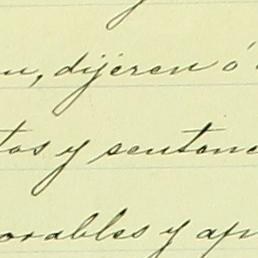 dijeren ó
tos y sentenc
orables y ap